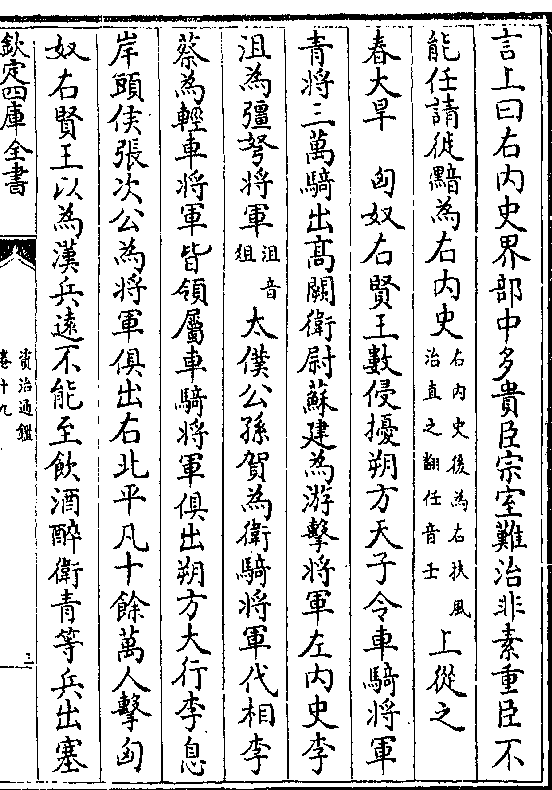 言上曰右内史界部中多貴臣宗室難治非素重臣不
能任請徙黯為右内史右内史後為右扶風治直之翻任音壬上從之
春大旱　匈奴右賢王數侵擾朔方天子令車騎將軍
青將三萬騎出高闕衛尉蘇建為游擊將軍左内史李
沮為彊弩將軍沮音俎太僕公孫賀為衛騎將軍代相李
蔡為輕車將軍皆領屬車騎將軍俱出朔方大行李息
岸頭侯張次公為將軍俱出右北平凡十餘萬人擊匈
奴右賢王以為漢兵遠不能至飲酒醉衛青等兵出塞
欽定四庫全書
資治通鑑
卷十九
三